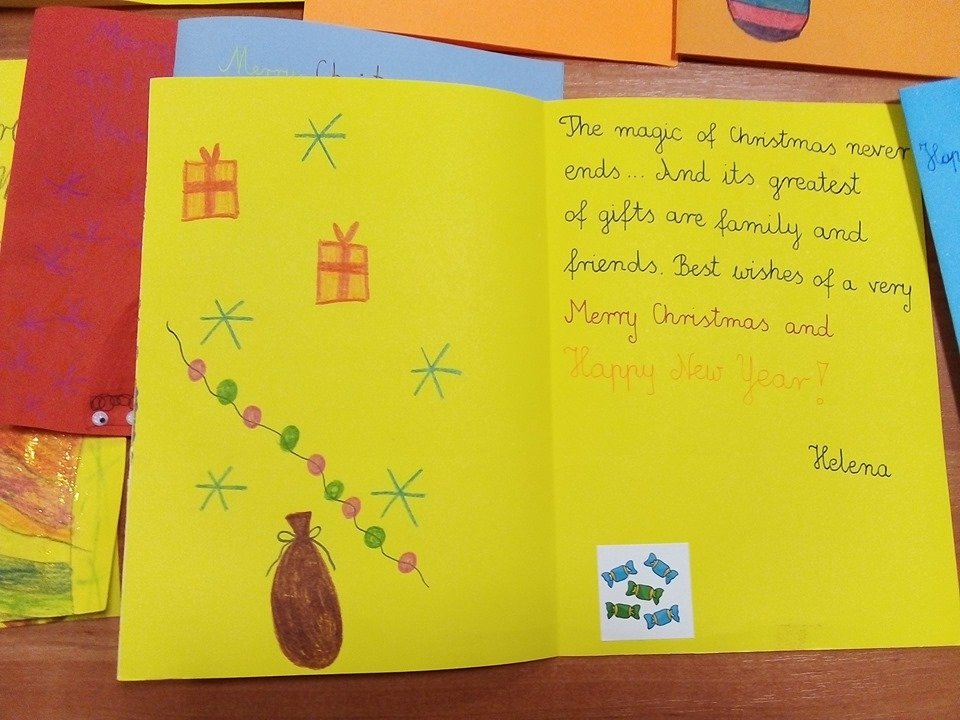 Merry
The magic of Christmas never
ends... And its greatest
of gifts are family and
friends. Best wishes of a very
Merry Christmas and
Happy New Year!
Helena